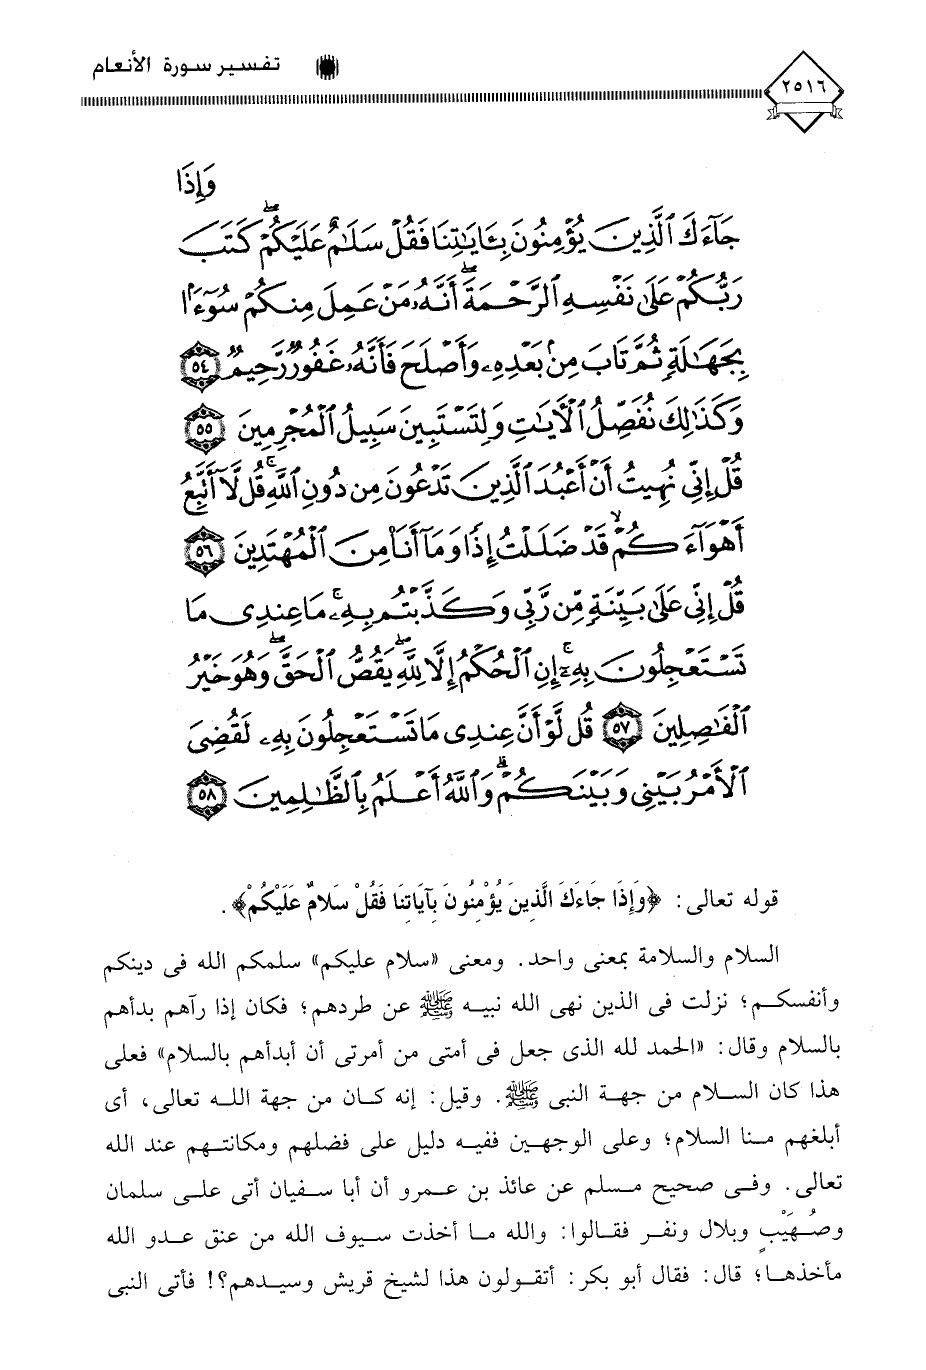 ٢٥١٦
تفسير سورة الأنعام
وَإِذَا
جَآءَكَ ٱلَّذِينَ يُؤْمِنُونَ بِـَٔايَٰتِنَا فَقُلْ سَلَٰمٌ عَلَيْكُمْ ۖ كَتَبَ
رَبُّكُمْ عَلَىٰ نَفْسِهِ ٱلرَّحْمَةَ ۖ أَنَّهُۥ مَنْ عَمِلَ مِنكُمْ سُوٓءًۢا
بِجَهَٰلَةٍ ثُمَّ تَابَ مِنۢ بَعْدِهِۦ وَأَصْلَحَ فَأَنَّهُۥ غَفُورٌ رَّحِيمٌ ٥٤
وَكَذَٰلِكَ نُفَصِّلُ ٱلْـَٔايَٰتِ وَلِتَسْتَبِينَ سَبِيلُ ٱلْمُجْرِمِينَ ٥٥
قُلْ إِنِّى نُهِيتُ أَنْ أَعْبُدَ ٱلَّذِينَ تَدْعُونَ مِن دُونِ ٱللَّهِ ۚ قُل لَّآ أَتَّبِعُ
أَهْوَآءَكُمْ ۙ قَدْ ضَلَلْتُ إِذًا وَمَآ أَنَا۠ مِنَ ٱلْمُهْتَدِينَ ٥٦
قُلْ إِنِّى عَلَىٰ بَيِّنَةٍ مِّن رَّبِّى وَكَذَّبْتُم بِهِۦ ۚ مَا عِندِى مَا
تَسْتَعْجِلُونَ بِهِۦٓ ۚ إِنِ ٱلْحُكْمُ إِلَّا لِلَّهِ ۖ يَقُصُّ ٱلْحَقَّ ۖ وَهُوَ خَيْرُ
ٱلْفَٰصِلِينَ ٥٧ قُل لَّوْ أَنَّ عِندِى مَا تَسْتَعْجِلُونَ بِهِۦ لَقُضِىَ
ٱلْأَمْرُ بَيْنِى وَبَيْنَكُمْ ۗ وَٱللَّهُ أَعْلَمُ بِٱلظَّٰلِمِينَ ٥٨
قوله تعالى: ﴿وَإِذَا جَاءَكَ الَّذِينَ يُؤْمِنُونَ بِآيَاتِنَا فَقُلْ سَلامٌ عَلَيْكُمْ﴾.
السلام والسلامة بمعنى واحد. ومعنى «سلام عليكم» سلمكم الله فى دينكم
وأنفسكم؛ نزلت فى الذين نهى الله نبيه ﷺ عن طردهم؛ فكان إذا رآهم بدأهم
بالسلام وقال: «الحمد لله الذى جعل فى أمتى من أمرتى أن أبدأهم بالسلام» فعلى
هذا كان السلام من جهة النبى ﷺ. وقيل: إنه كان من جهة الله تعالى، أى
أبلغهم منا السلام؛ وعلى الوجهين ففيه دليل على فضلهم ومكانتهم عند الله
تعالى. وفى صحيح مسلم عن عائذ بن عمرو أن أبا سفيان أتى على سلمان
وصُهَيْبٍ وبلال ونفر فقالوا: والله ما أخذت سيوف الله من عنق عدو الله
مأخذها؛ قال: فقال أبو بكر: أتقولون هذا لشيخ قريش وسيدهم؟! فأتى النبى